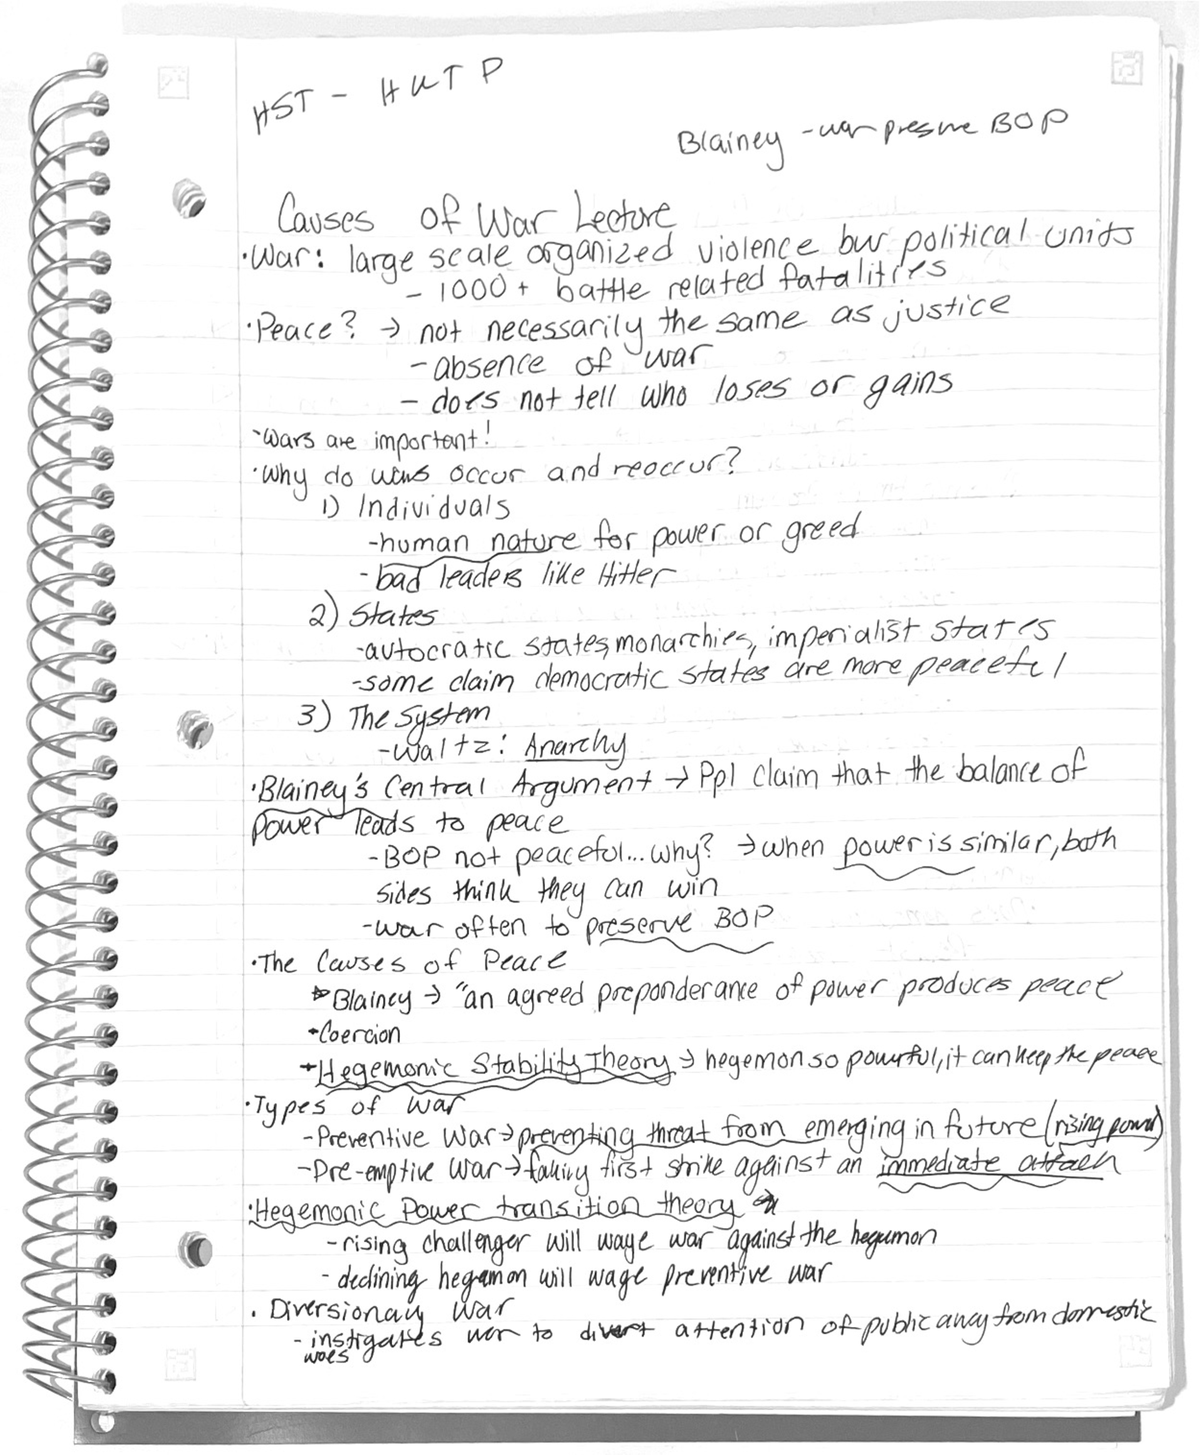 HST - HUTP
Blainey - war preserve BOP
Causes of War Lecture
·War: large scale organized violence bw political units
- 1000+ battle related fatalities
·Peace? → not necessarily the same as justice
- absence of war
- does not tell who loses or gains
·Wars are important!
·Why do wars occur and reoccur?
1) Individuals
-human nature for power or greed
-bad leaders like Hitler
2) States
-autocratic states, monarchies, imperialist states
-some claim democratic states are more peaceful
3) The System
-Waltz: Anarchy
·Blainey's Central Argument → Ppl claim that the balance of
power leads to peace
-BOP not peaceful... why? → when power is similar, both
sides think they can win
-war often to preserve BOP
·The Causes of Peace
Blainey → "an agreed preponderance of power produces peace
-Coercion
-Hegemonic Stability Theory → hegemon so powerful, it can keep the peace
·Types of War
-Preventive War → preventing threat from emerging in future (rising power)
-Pre-emptive War → taking first strike against an immediate attack
·Hegemonic Power transition theory →
-rising challenger will wage war against the hegemon
-declining hegemon will wage preventive war
·Diversionary War
-instigates war to divert attention of public away from domestic
woes